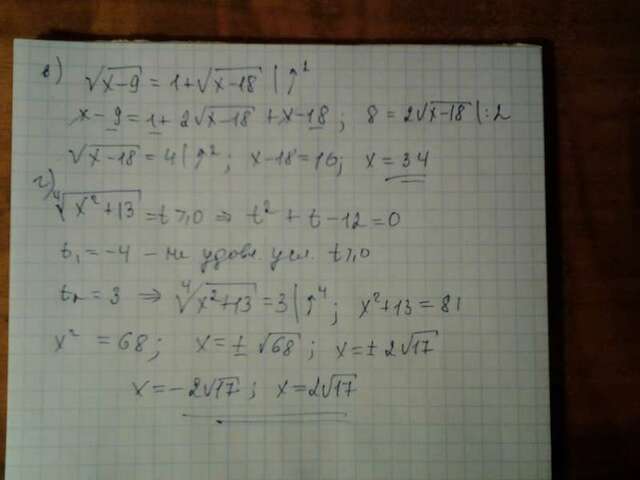 в) √(x-9) = 1+√(x-18) |↑²
x-9 = 1+ 2√(x-18) + x-18 ; 8 = 2√(x-18) |:2
√(x-18) = 4 |↑² ; x-18=16; x = 34
г) ⁴√(x²+13) = t ≥ 0 ⇒ t² + t -12 = 0
t₁ = -4 – не удовл. усл. t ≥ 0
t₂ = 3 ⇒ ⁴√(x²+13) = 3 |↑⁴ ; x²+13 = 81
x² = 68; x = ± √68 ; x = ± 2√17
x = -2√17 ; x = 2√17